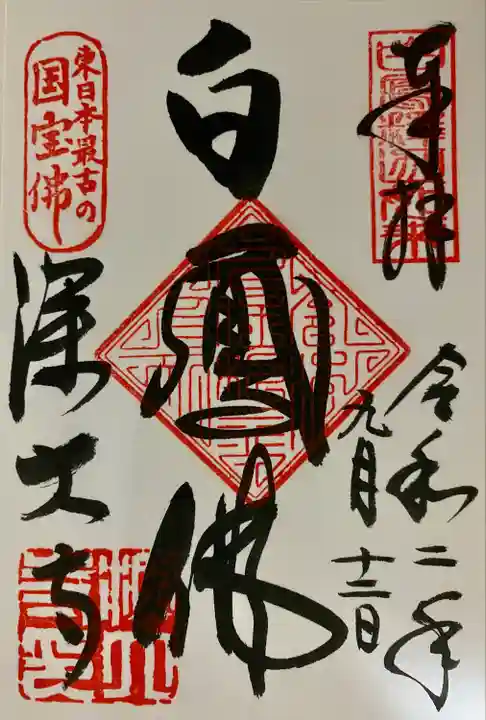 奉拝
令和二年
九月十二日
白鳳佛
東日本最古の
国宝佛
深大寺